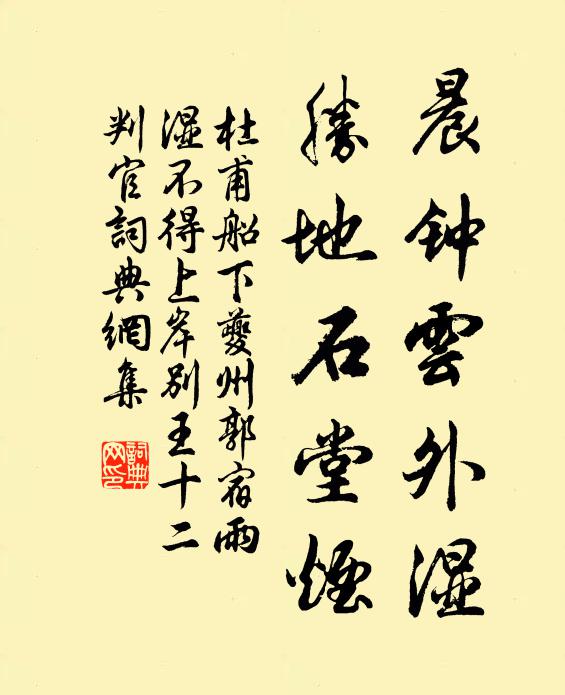 晨钟雲外湿
勝地石堂煙
杜甫船下夔州郭宿雨
湿不得上岸别王十二
判官詞典網集
詞典网印